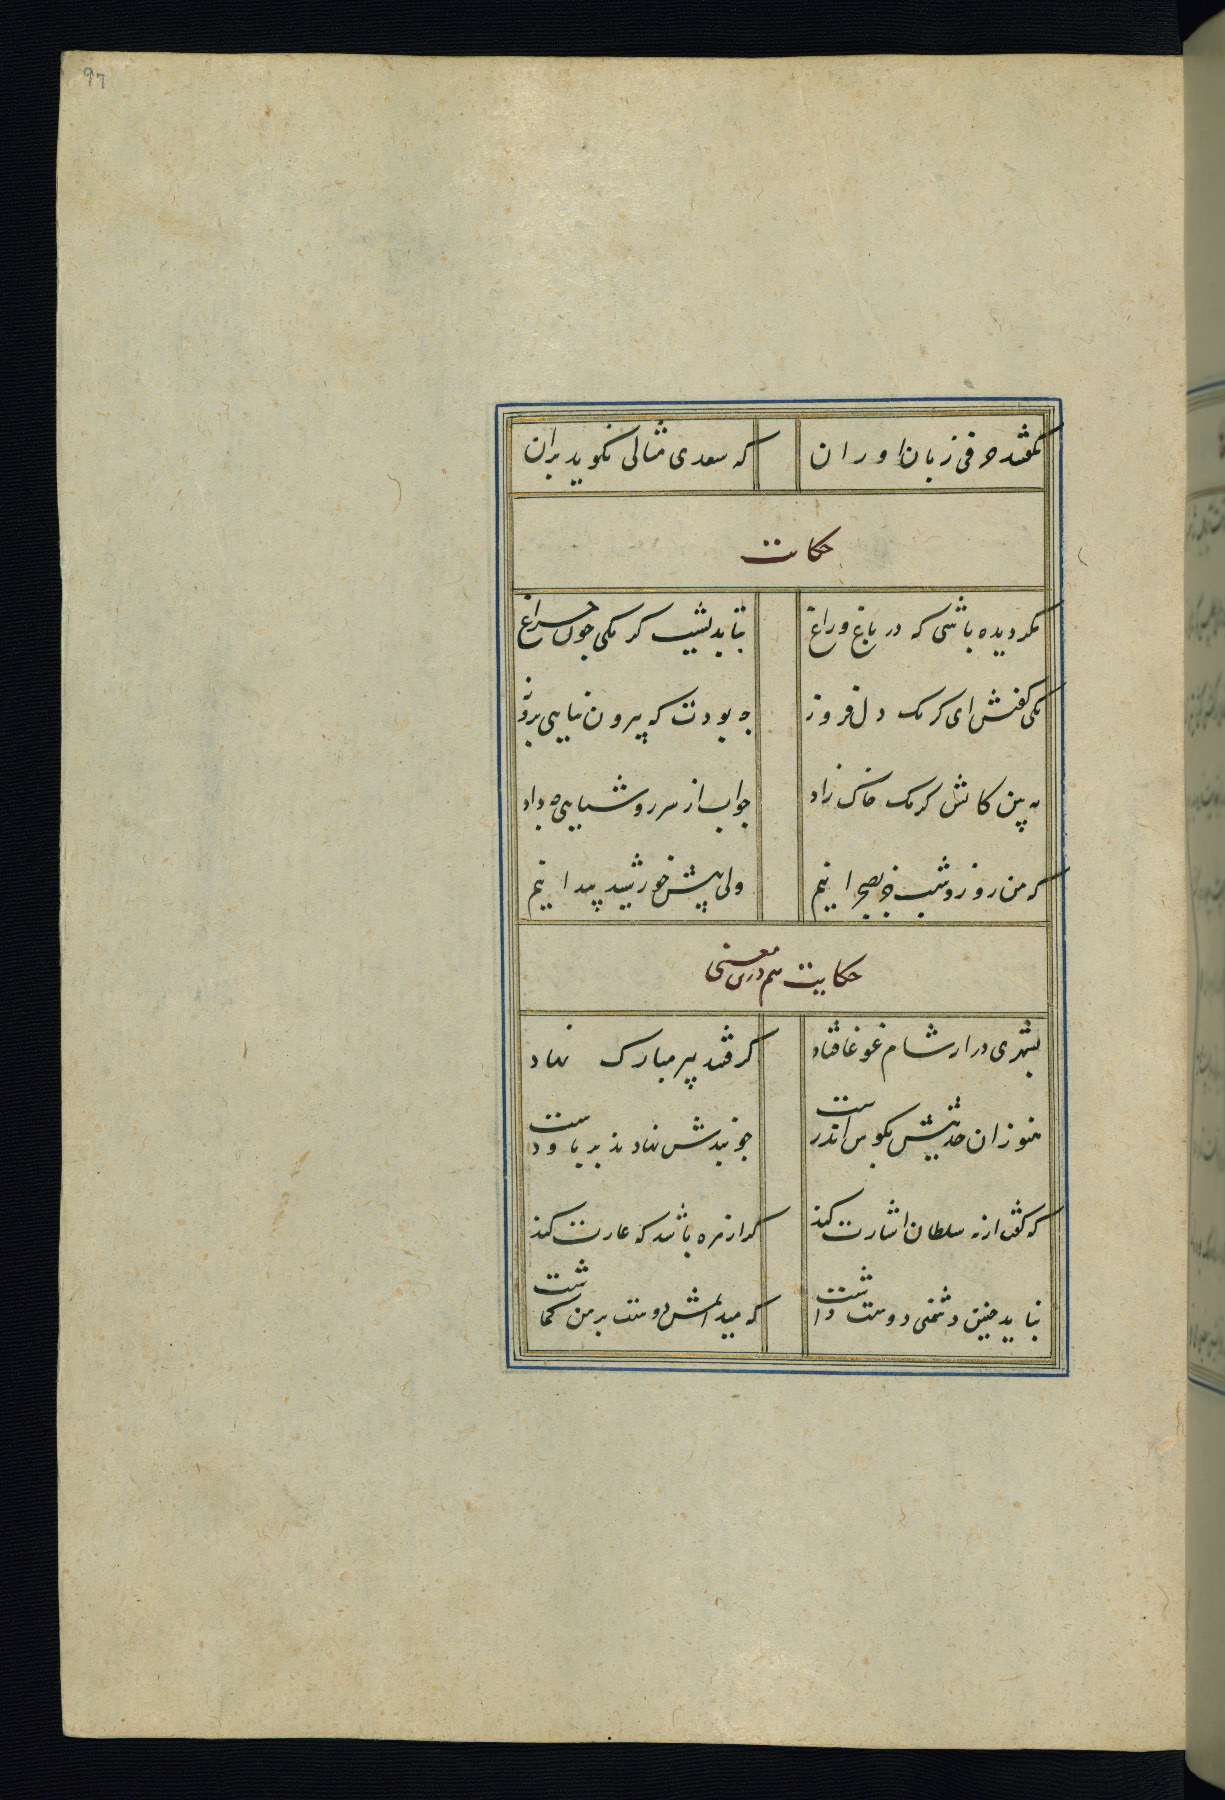 97
نگفتند حرفی زبان اوران که سعدی مثالی نگوید بران
حکایت
مگر دیده باشی که در باغ و راغ بتابد بشب کرمکی چون چراغ
یکی گفتش ای کرمک دل فروز چه بودت که بیرون نیایی بروز
به بین کاتشی کرمک خاک زاد جواب از سر روشنایی چه داد
که من روز و شب جز بصحرا نیم ولی پیش خورشید پیدا نیم
حکایت هم درین معنی
بشهری در از شام غوغا فتاد گرفتند پیر مبارک نهاد
هنوز آن حدیثش بگوش اندرست چو بندش نهادند بر پا و دست
که گفت ار نه سلطان اشارت کند کرا زهره باشد که غارت کند
بباید چنین دشمنی دوست داشت که میدانمش دوست بر من گماشت